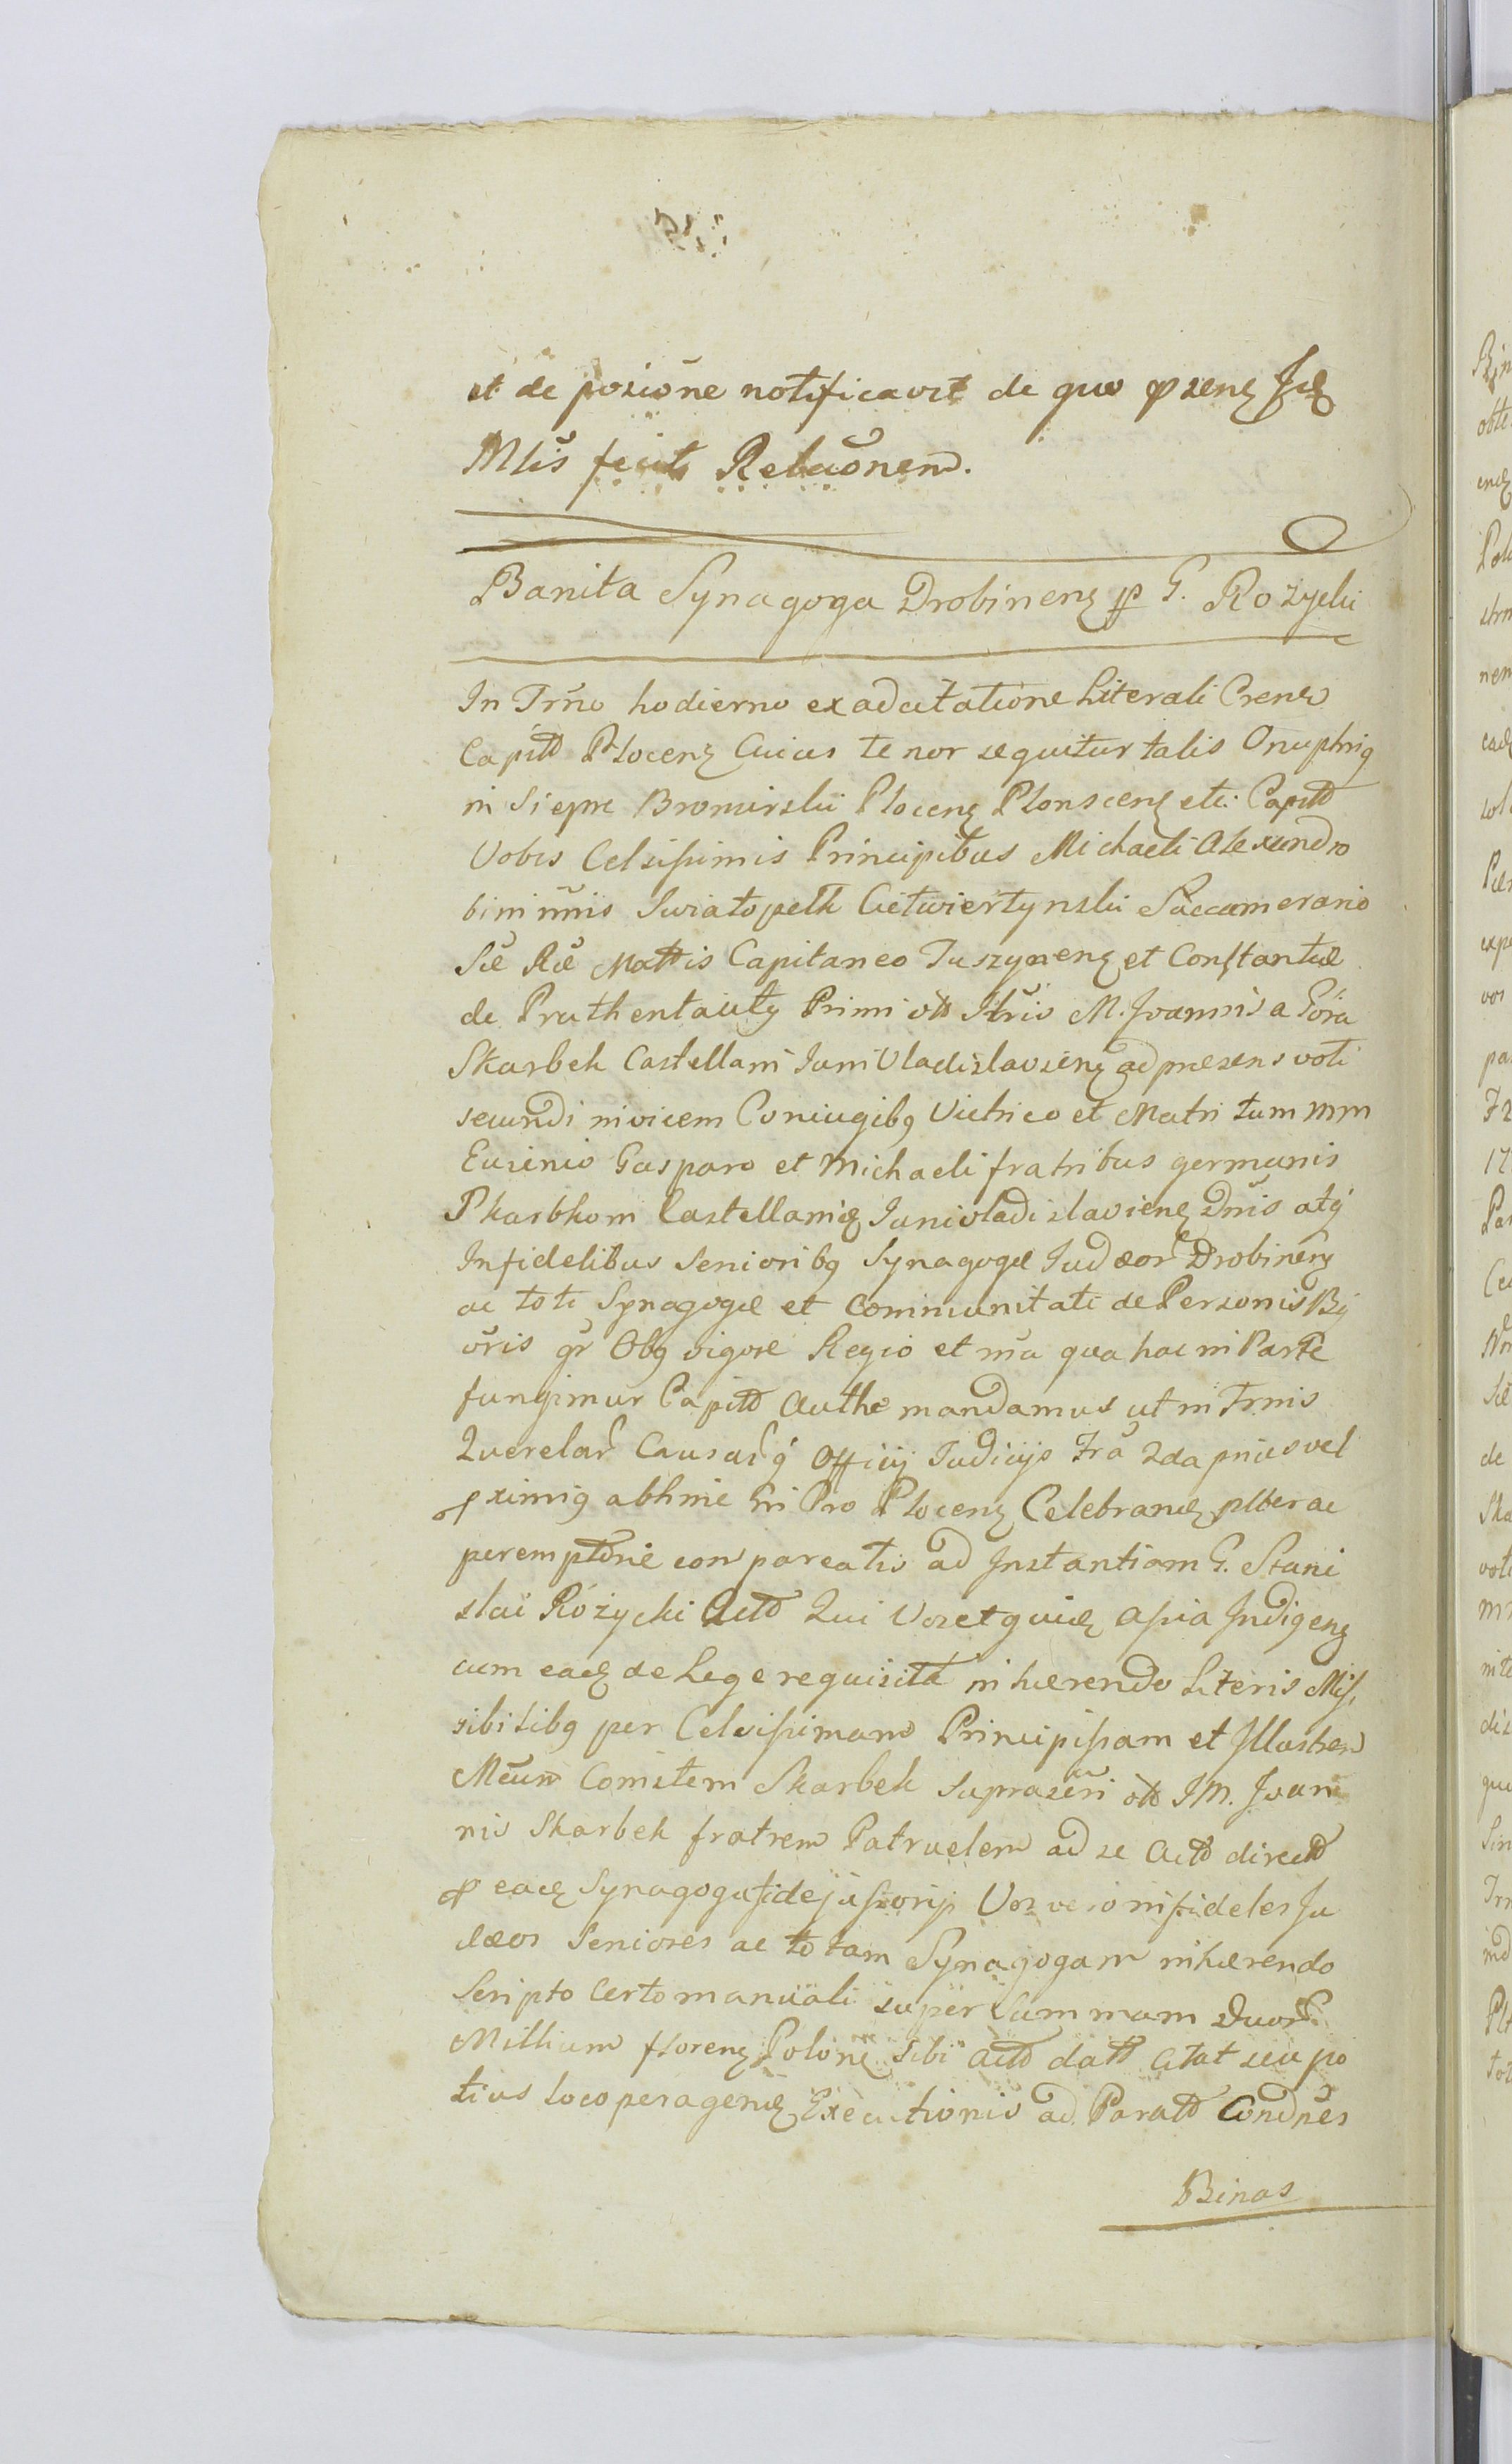 et de poziõne notificavit de quo przenz Juᵭ
Mlĩs fecit Relaõnem.
Banita Synagoga Drobinenz p G. Rozycki
In Trño hodierno ex adcitatione Literali Crenẽ
Capitt Plocenz Cuius tenor sequitur talis Onuphrig
in Siepre Bromirski Plocenz Plonscenz etc: Capitt
Vobis Celsissimis Principibus Michaeli Alexandro
bini nñis Swiatopelk Cietwiertynski Succamerario
Sæ Ræ Mattis Capitaneo Tuszynenz et Constantiæ
de Primi ott Iltris M. Joannis a Góra
Skarbek Castellani Juni Vladislavienz ad præsens voti
secundi invicem Coniugibg Vitrico et Matri tum mm
Eusenio Gasparo et Michaeli fratribus germanis
Skarbkom Castellaniæ Junivladislavienz Dñis atq
Infidelibus Senioribg Synagogæ Judæor Drobinenz
ac toti Synagogæ et Communitati de Personis Bq
vris gr Obg vigore Regio et ñra qua hac in Parte
fungimur Capitt Authe mandamus ut in Trnis
Querelar Causarq Officij Judicijs Fra 2da prius vel
pximig abhinc in Pro Plocenz Celebranᵭ plber ac
peremptorie compareatis ad Instantiam G. Stani
slai Różycki Actt Qui Vos et quiᵭ assia Indigenz
cum eaᵭ de Lege requisita inhærendo Literis Miss
sibilibg per Celsissimam Principissam et Illustrem
Mcum Comitem Skarbek suprascri ott IM. Joan
nis Skarbek fratrem Patruelem ad se Actt directt
p eaᵭ Synagoga fidejussorijs Vos vero infideles Ju
dæos Seniores ac totam Synagogam inhærendo
Scripto Certo manuali super Summam Duor
Millium florenz Polonz sibi Actt datt citat seu po
tius loco peragenᵭ Executionis ad Paratt Condnes
Binas